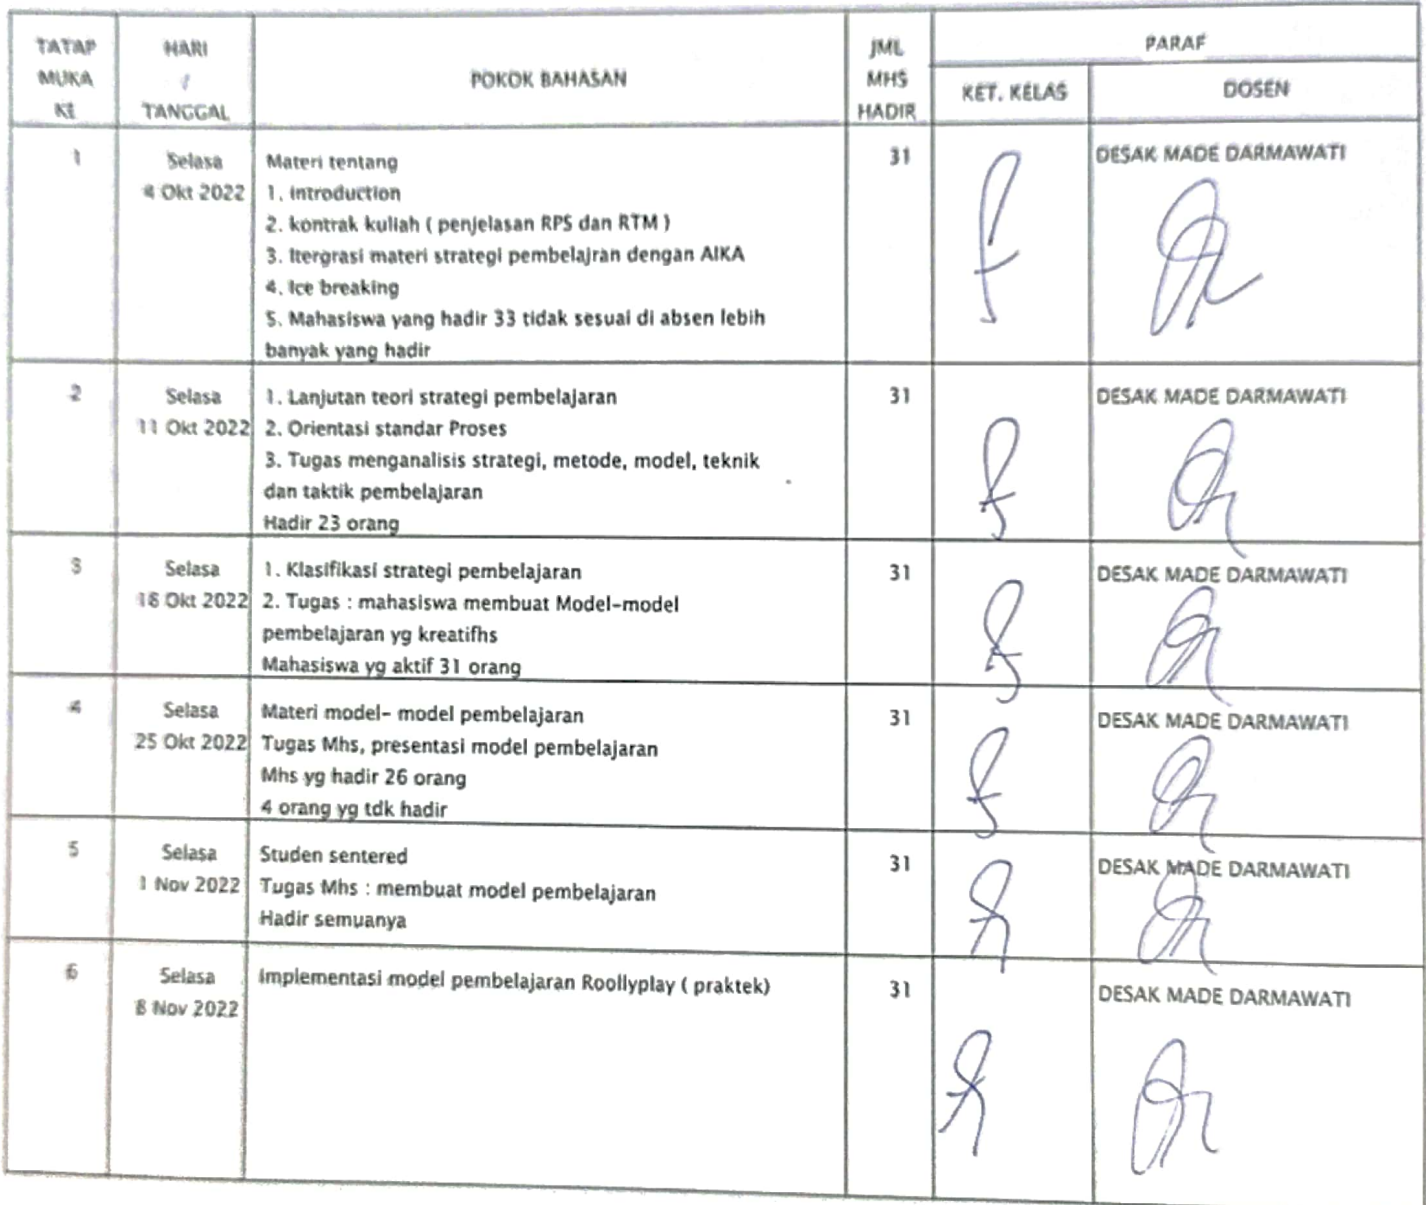 TATAP MUKA KE
HARI / TANGGAL
POKOK BAHASAN
JML MHS HADIR
PARAF
KET. KELAS
DOSEN
1
Selasa
4 Okt 2022
Materi tentang
1. introduction
2. kontrak kuliah ( penjelasan RPS dan RTM )
3. Itergrasi materi strategi pembelajran dengan AIKA
4. Ice breaking
5. Mahasiswa yang hadir 33 tidak sesuai di absen lebih
banyak yang hadir
31
DESAK MADE DARMAWATI
2
Selasa
11 Okt 2022
1. Lanjutan teori strategi pembelajaran
2. Orientasi standar Proses
3. Tugas menganalisis strategi, metode, model, teknik
dan taktik pembelajaran
Hadir 23 orang
31
DESAK MADE DARMAWATI
3
Selasa
18 Okt 2022
1. Klasifikasi strategi pembelajaran
2. Tugas : mahasiswa membuat Model-model
pembelajaran yg kreatifhs
Mahasiswa yg aktif 31 orang
31
DESAK MADE DARMAWATI
4
Selasa
25 Okt 2022
Materi model- model pembelajaran
Tugas Mhs, presentasi model pembelajaran
Mhs yg hadir 26 orang
4 orang yg tdk hadir
31
DESAK MADE DARMAWATI
5
Selasa
1 Nov 2022
Studen sentered
Tugas Mhs : membuat model pembelajaran
Hadir semuanya
31
DESAK MADE DARMAWATI
6
Selasa
8 Nov 2022
Implementasi model pembelajaran Roollyplay ( praktek)
31
DESAK MADE DARMAWATI